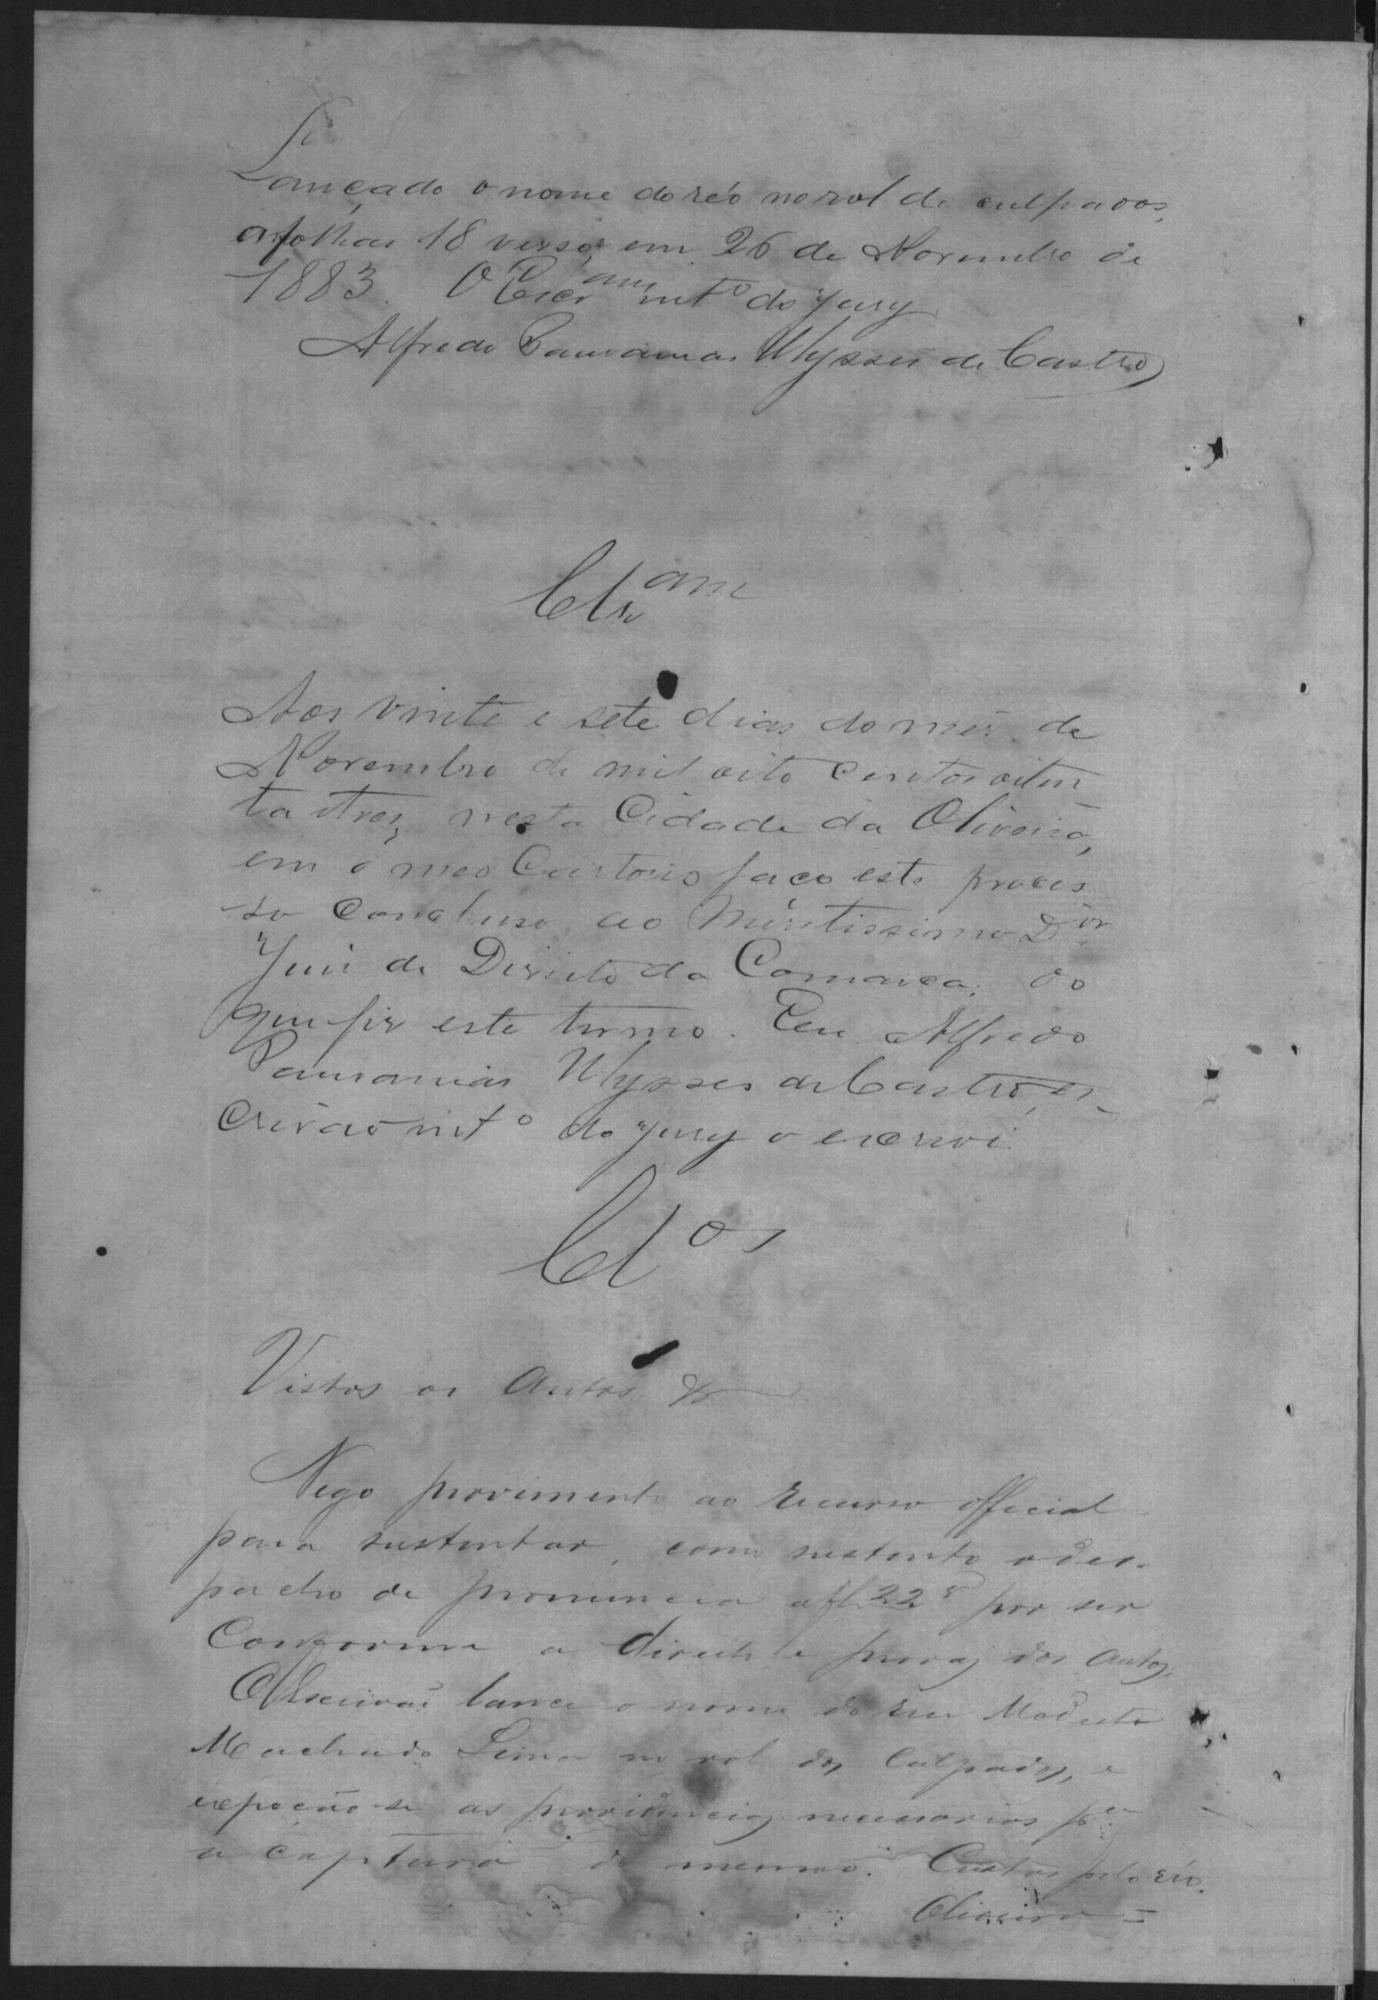 Lançado o nome do réo no rol de culpados,
a folhas 18 verso, em 26 de Novembro de
1883. O Escr.am int.o do Jury
Alfredo Pausanias Ulysses de Castro
Cls.am
Aos vinte e sete dias do mes de
Novembro de mil oito centos oiten
ta e tres, nesta Cidade da Oliveira,
em o meo Cartorio faço este proces
so concluso ao Meritissimo D.or
Juiz de Direito da Comarca; do
que fiz este termo. Eu Alfredo
Pausanias Ulysses de Castro, es-
crivão int.o do Jury o escrevi.
Cl.os
Vistos os autos &
Nego provimento ao recurso official
para sustentar, como sustento o des-
pacho de pronuncia a fl. 22 por ser
conforme a direito e provas dos autos.
O Escrivão lance o nome do reu Modesto
Machado Lima no rol dos Culpados, e
expeção-se as providencias necessarias p.a
a captura do mesmo. Custas pelo réo.
Oliveira